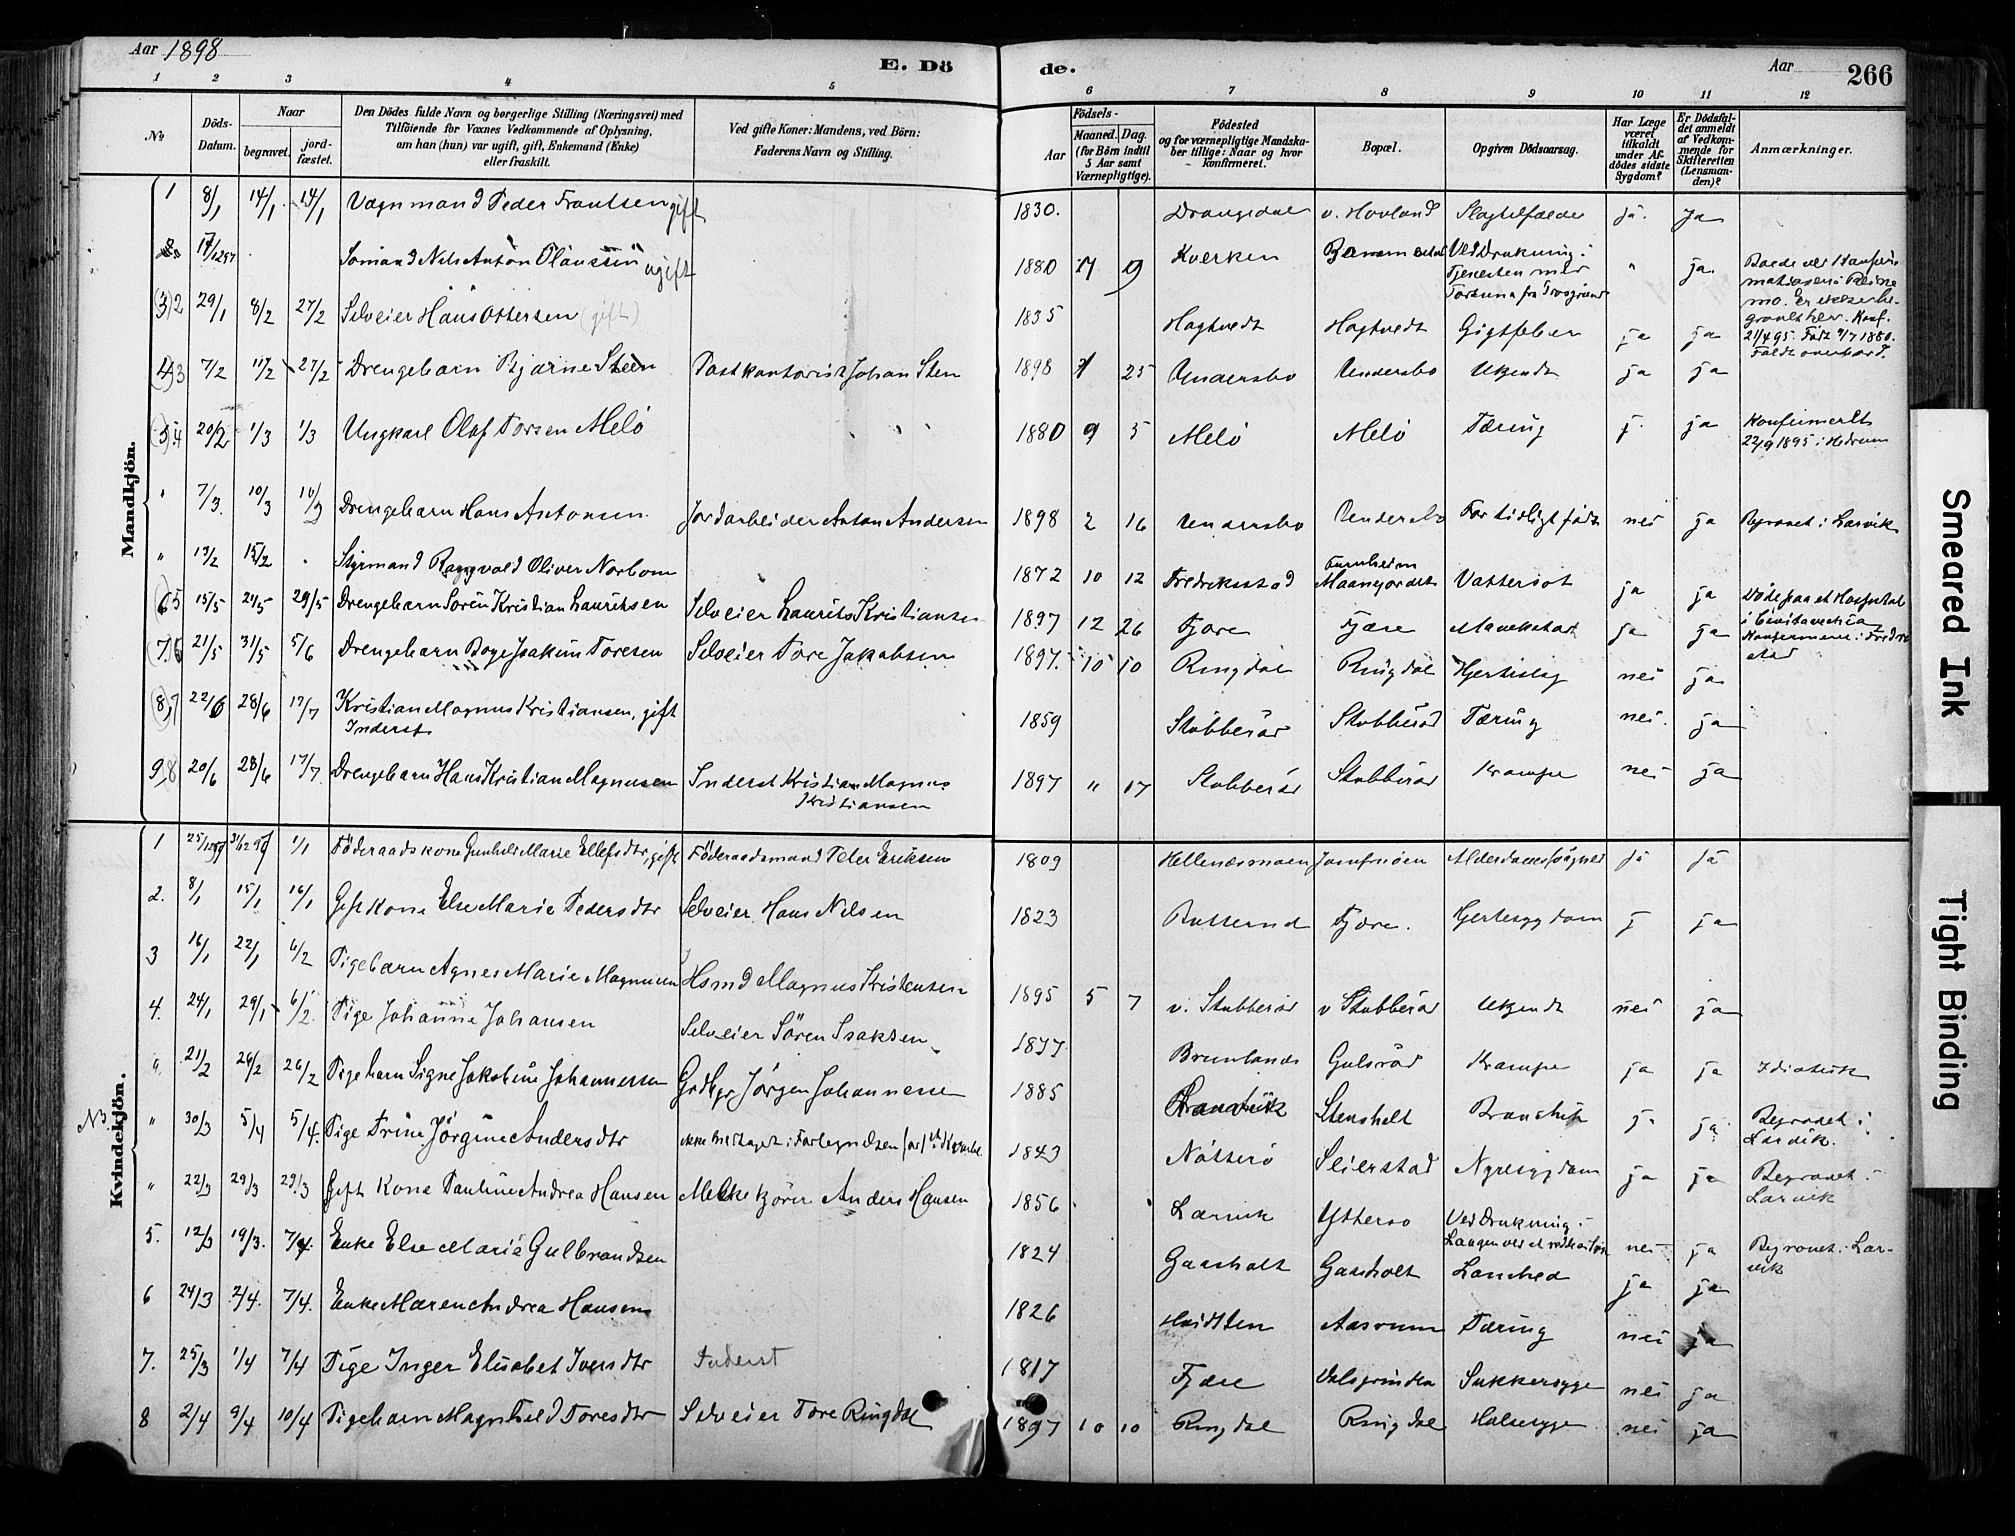 Aar 1898
E. Dö
de.
Aar
266
1 2 3 4 5
6 7 8 9 10 11 12
No
Döds-
Datum.
Naar
begravet.
jord-
fæstet.
Den Dödes fulde Navn og borgerlige Stilling (Næringsvei) med
Tilföiende for Voxnes Vedkommende af Oplysning,
om han (hun) var ugift, gift, Enkemand (Enke)
eller fraskilt.
Ved gifte Koner: Mandens, ved Börn:
Faderens Navn og Stilling.
Födsels-
Aar
Maaned. Dag.
(for Börn indtil
5 Aar samt
Værnepligtige).
Födested
og for værnepligtige Mandska-
ber tillige: Naar og hvor
konfirmeret.
Bopæl.
Opgiven Dödsaarsag.
Har Læge
været
tilkaldt
under Af-
dödes sidste
Sygdom?
Er Dödsfal-
det anmeldt
af Vedkom-
mende for
Skifteretten
(Lensman-
den)?
Anmærkninger.
Mandkjön.
1 8/1 14/1 14/1 Vognmand Peder Frantsen gift 1830. Drangedal v. Hovland Slagtilfælde ja. ja
Sömand Nils Anton Olaussen ugift 1880 9 Kverken Ved Drukning i ja.
Tjenesten med
Fortuna fra Porsgrund
(3) 2 29/1 8/2 27/2 Selveier Hans Ottersen (gift) 1835 Hagtvedt Hagtvedt Gigtfeber ja ja
gravet her. Konf.
21/4 95. Födt 9/7 1880.
Faldt overbord.
(4) 3 7/2 11/2 27/2 Drengebarn Bjarne Steen Postkontorist Johan Sten 1898 1 25 Undersbo Undersbo Ukjendt ja ja
(5) 4 20/2 1/3 1/3 Ungkarl Olaf Torsen Melö 1880 9 5 Melö Melö Tæring j. ja Konfirmert
22/9 1895 i Hedrum
" 7/3. 10/3 10/3 Drengebarn Hans Antonsen Jordarbeider Anton Andersen 1898 2 16 Undersbo Undersbo For tidligt födt nei ja Begravet i Larvik
" 13/2 15/2 Styrmand Ragnvald Oliver Norbom 1872 10 12 Fredriksstad Furuheim
Maanejordet Vattersot ja ja Döde paa et Hospital
i Civitavechia
(6) 5 15/5 21/5 29/5 Drengebarn Sören Kristian Lauritsen Selveier Laurits Kristiansen 1897 12 26 Fjære Fjære ja ja
(7) 6 21/5 31/5 5/6 Drengebarn Boge Joakim Toresen Selveier Tore Jakobsen 1897. 10 10 Ringdal Ringdal nei ja
(8) 7 22/6 28/6 17/7 Kristian Magnus Kristiansen, gift
Inderst 1859 Stubberöd Stubberöd Tæring nei. ja
9 8 20/6 28/6 17/7 Drengebarn Hans Kristian Magnusen Inderst Kristian Magnus
Kristiansen 1897 " 17 Stubberöd Stubberöd Krampe nei ja
Kvindekjön.
1 25/12 97 31/12 97 1/1 Föderaadskone Gunhild Marie Ellefsdtr, gift Föderaadsmand Peter Eriksen 1809 Jomfruöen ja ja
2. 8/1 15/1 16/1 Gift Kone Else Marie Pedersdtr Selveier Hans Nilsen 1823 Fjære. Hjertesygdom j ja
3 16/1 22/1 6/2 Pigebarn Agnes Marie Magnusen Hsmd Magnus Kristensen 1895 5 7 v. Stubberöd v Stubberöd Ukjendt nei ja
4. 24/1 29/1 6/2. Pige Johanne Johansen Selveier Sören Isaksen 1877 Brunlanes Gulsröd Krampe ja ja Idiotisk
" 21/2 26/2 26/2 Pigebarn Signe Jakobine Johannessen Grdbgr. Jörgen Johannesen 1885 Stensholt ja ja. Begravet i
Larvik.
NB. " 30/3 5/4 5/4. Pige Trine Jörgine Andersdtr 1843 Nötterö Seierstad Nyresygdom ja ja Begravet i
Larvik
" 22/3 29/3 29/3 Gift Kone Pauline Andrea Hansen Melkekjörer Anders Hansen 1856 Larvik Ytterso Ved Drukning i nei ja Begravet i Lar-
vik
5. 12/3 19/3. 7/4. Enke Else Marie Gulbrandsen 1824 Gaasholt Gaasholt ja ja
6 24/3 2/4. 7/4. Enke Maren Andrea Hansen 1826 Aasrum Tæring nei ja
7. 25/3 1/4 7/4 Pige Inger Elisabet Iversdtr Inderst 1817 Fjære Sukkersyge nei ja
8 2/4 9/4 10/4 Pigebarn Magnhild Toresdtr Selveier Tore Ringdal 1897 10 10 Ringdal Ringdal Halsesyge nei ja
Smeared Ink
Tight Binding